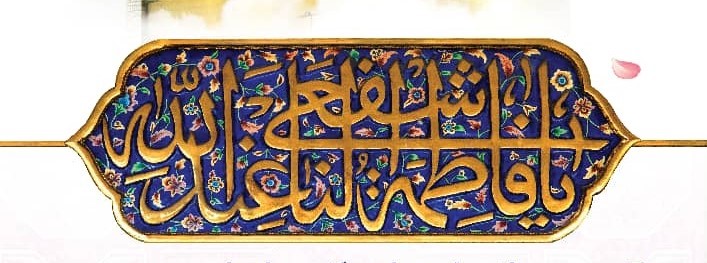 یا فاطمة اشفعی لنا عند الله